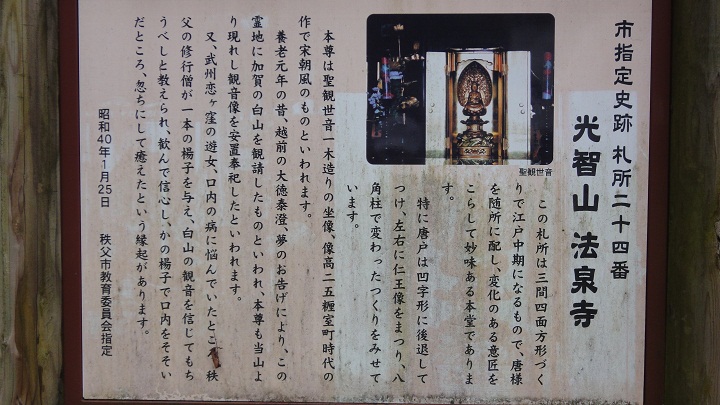 市指定史跡 札所二十四番
光智山 法泉寺
聖観世音
この札所は三間四面方形づく
りで江戸中期になるもので、唐様
を随所に配し、変化のある意匠を
こらして妙味ある本堂でありま
す。
特に唐戸は凹字形に後退して
つけ、左右に仁王像をまつり、八
角柱で変わったつくりをみせて
います。
本尊は聖観世音一木造りの坐像、像高二五糎室町時代の
作で宋朝風のものといわれます。
養老元年の昔、越前の大徳泰澄、夢のお告げにより、この
霊地に加賀の白山を観請したものといわれ、本尊も当山よ
り現れし観音像を安置奉祀したといわれます。
又、武州恋ヶ窪の遊女、口内の病に悩んでいたとこ、秩
父の修行僧が一本の楊子を与え、白山の観音を信じてもち
うべしと教えられ、歓んで信心し、かの楊子で口内をそそい
だところ、忽ちにして癒えたという縁起があります。
昭和40年1月25日 秩父市教育委員会指定